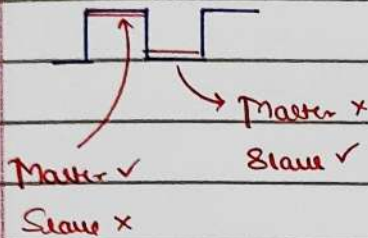 Master ×
Slave ✓
Master ✓
Slave ×